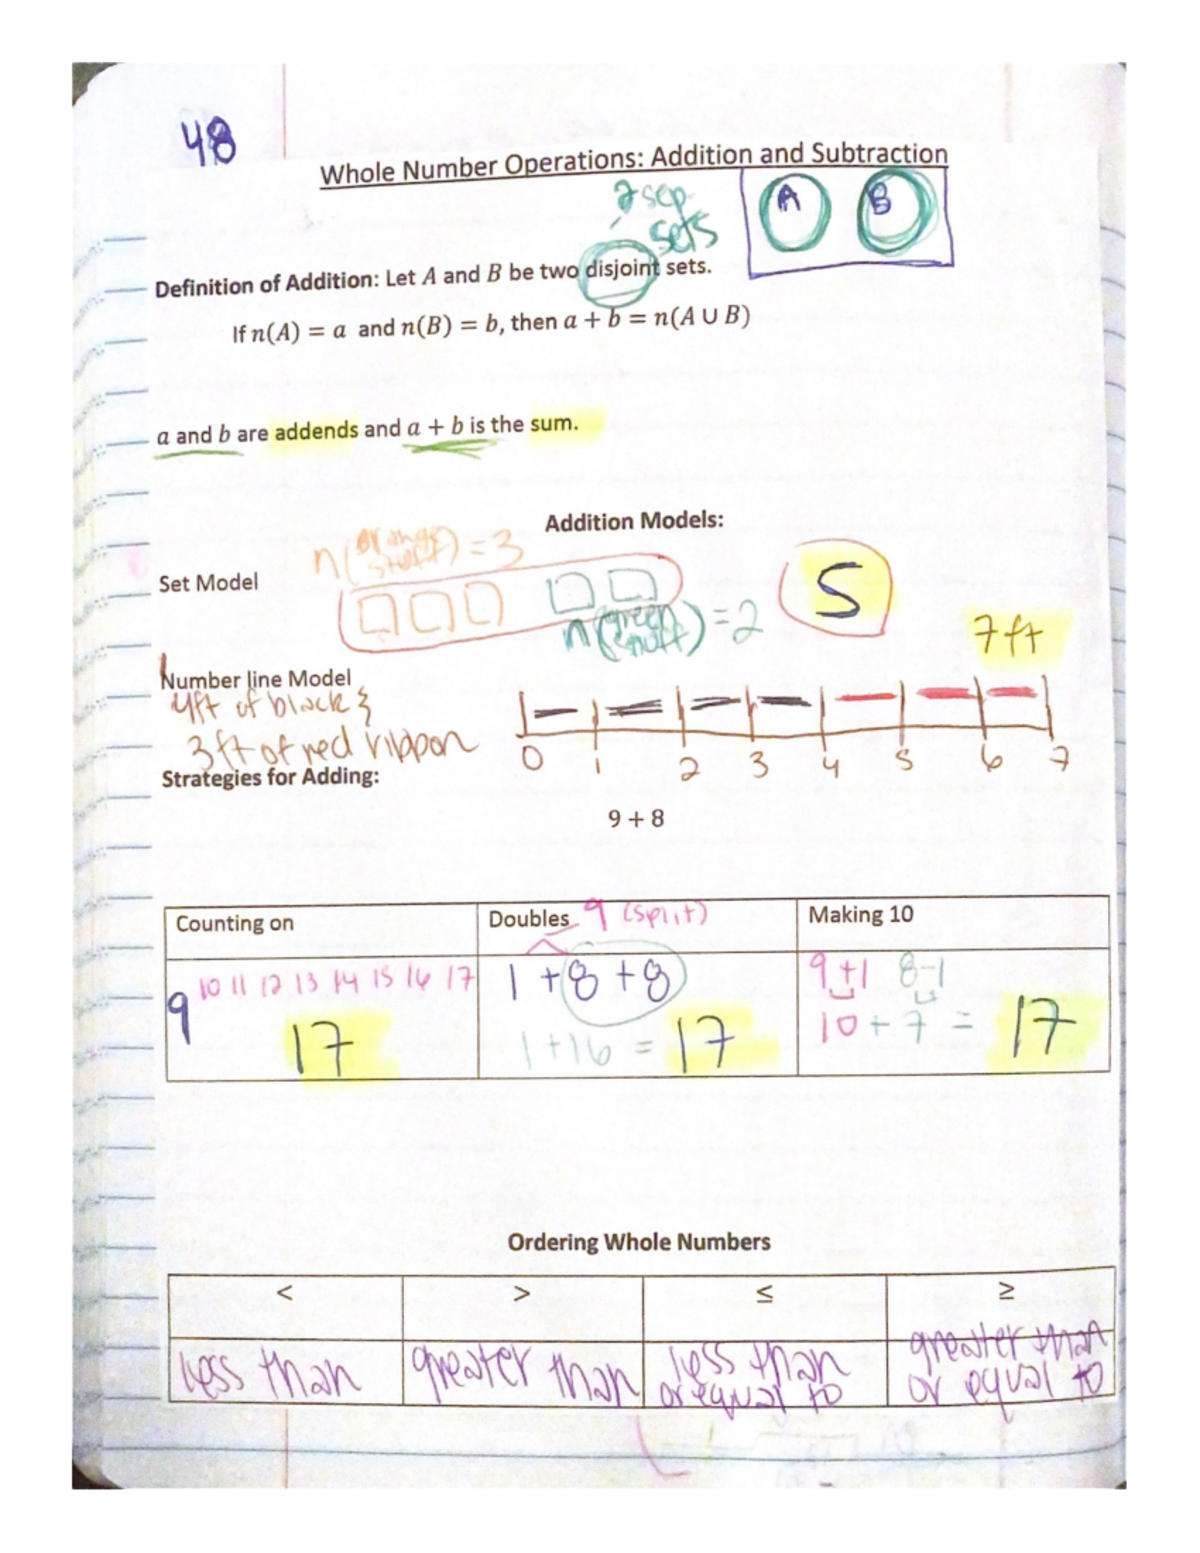 48
Whole Number Operations: Addition and Subtraction
2 sep.
sets
A B
Definition of Addition: Let A and B be two disjoint sets.
If n(A) = a and n(B) = b, then a + b = n(A ∪ B)
a and b are addends and a + b is the sum.
Addition Models:
n(orange stuff) = 3
Set Model
5
n(green stuff) = 2
7ft
Number line Model
4ft of black &
3ft of red rippon
0 1 2 3 4 5 6 7
Strategies for Adding:
9 + 8
Counting on
Doubles 9 (split)
Making 10
9 10 11 12 13 14 15 16 17
17
1 + 8 + 8
1 + 16 = 17
9+1 8-1
10 + 7 = 17
Ordering Whole Numbers
< > ≤ ≥
less than
greater than
less than
or equal to
greater than
or equal to